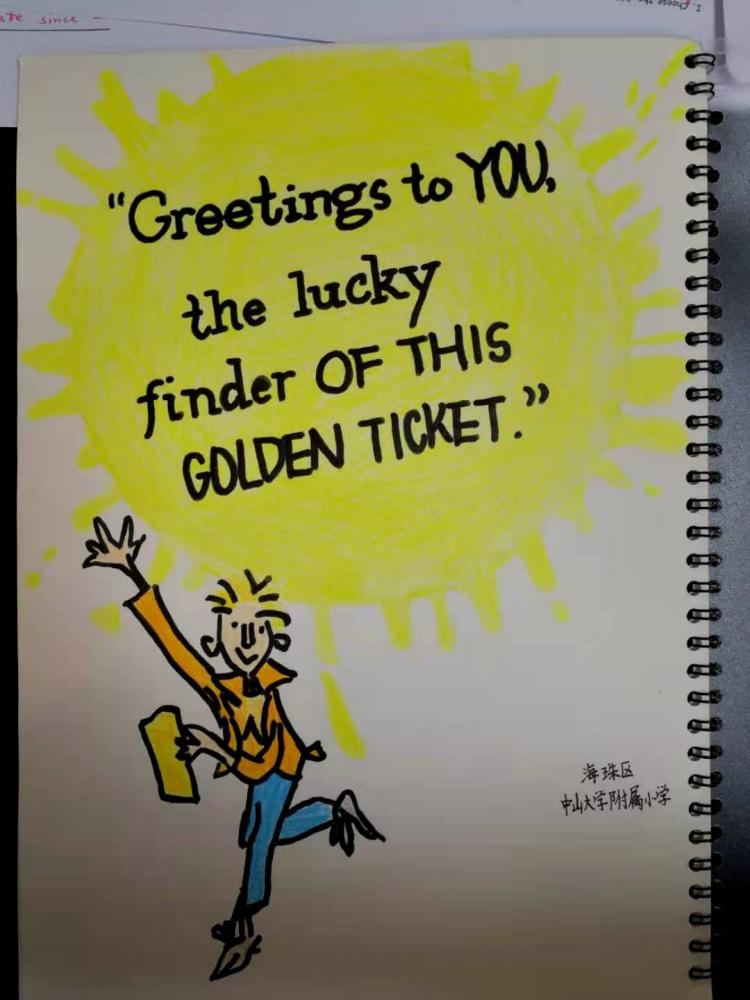 ate since
1. Choose the
“Greetings to YOU,
the lucky
finder OF THIS
GOLDEN TICKET.”
海珠区
中山大学附属小学